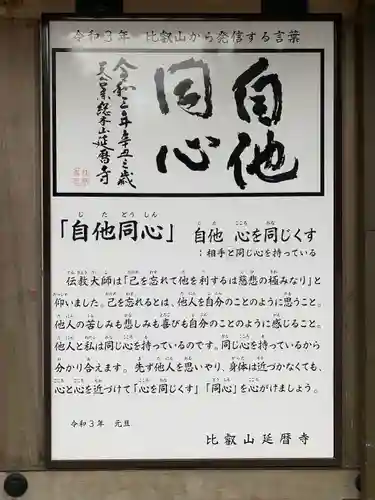 令和3年 比叡山から発信する言葉
自他
同心
令和三年辛丑之歳
天台宗総本山延暦寺
「自他同心」 自他 心を同じくす
じ た どう しん じ た こころ おな
：相手と同じ心を持っている
伝教大師は「己を忘れて他を利するは慈悲の極みなり」と
仰いました。己を忘れるとは、他人を自分のことのように思うこと。
他人の苦しみも悲しみも喜びも自分のことのように感じること。
他人と私は同じ心を持っているのです。同じ心を持っているから
分かり合えます。先ず他人を思いやり、身体は近づかなくても、
心と心を近づけて「心を同じくす」「同心」を心がけましょう。
令和3年 元旦
比叡山延暦寺